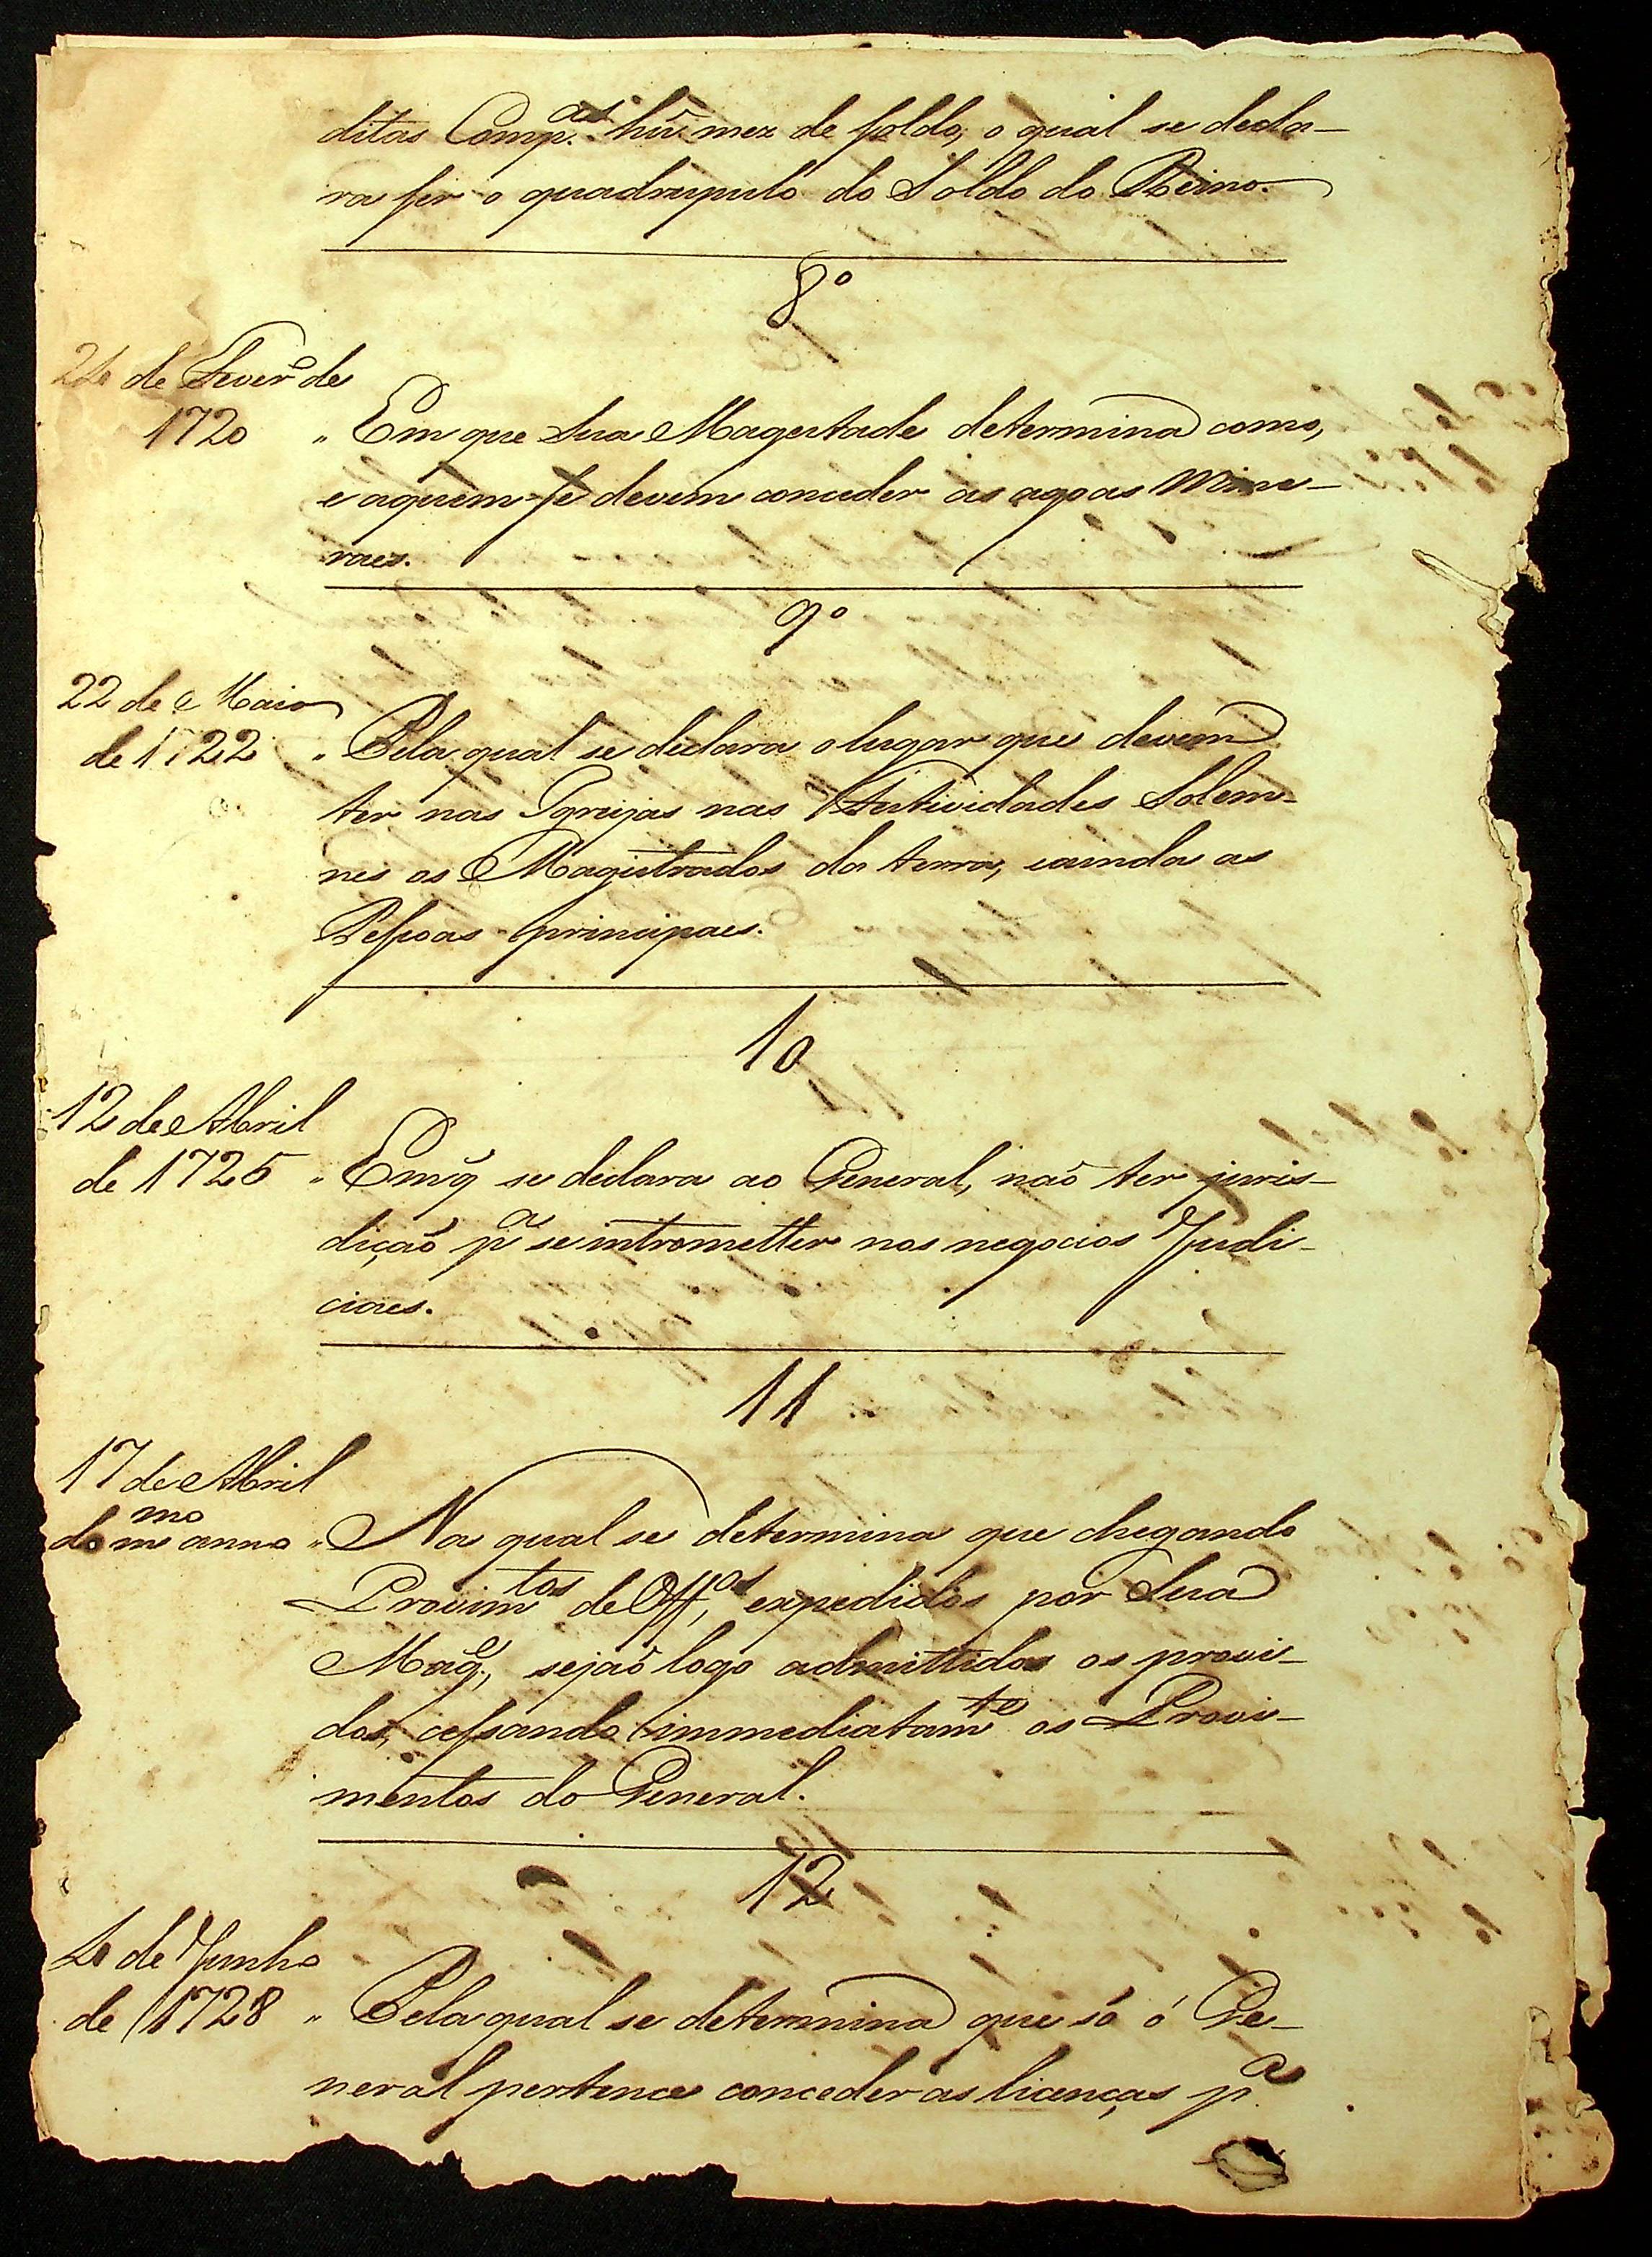 ditas Comp.as hũ mez de soldo, o qual se decla-
ra ser o quadruputo do Soldo do Reino.
8º
24 de Fever.º de
1720 " Em que Sua Magestade determina como,
e aquem se devem conceder as agoas Mine-
raes.
9º
22 de Maio
de 1722 " Pela qual se declara o lugar que devem
ter nas Igreijas nas Festividades Solem-
nes os Magistrados da terra, e ainda as
Pessoas principaes.
10
12 de Abril
de 1725 " Em q̃ se declara ao General, naõ ter juris-
diçaõ p.a se intrometter nos negocios Judi-
ciaes.
11
17 de Abril
do m.mo anno " Na qual se determina que chegando
Provim.tos de Off.os expedidos por Sua
Mag.e, sejaõ logo admittidos os provi-
dos, cessando immediatam.te os Provi-
mentos do General.
12
4 de Junho
de 1728 " Pela qual se determina que só ó Ge-
neral pertence conceder as licenças p.a